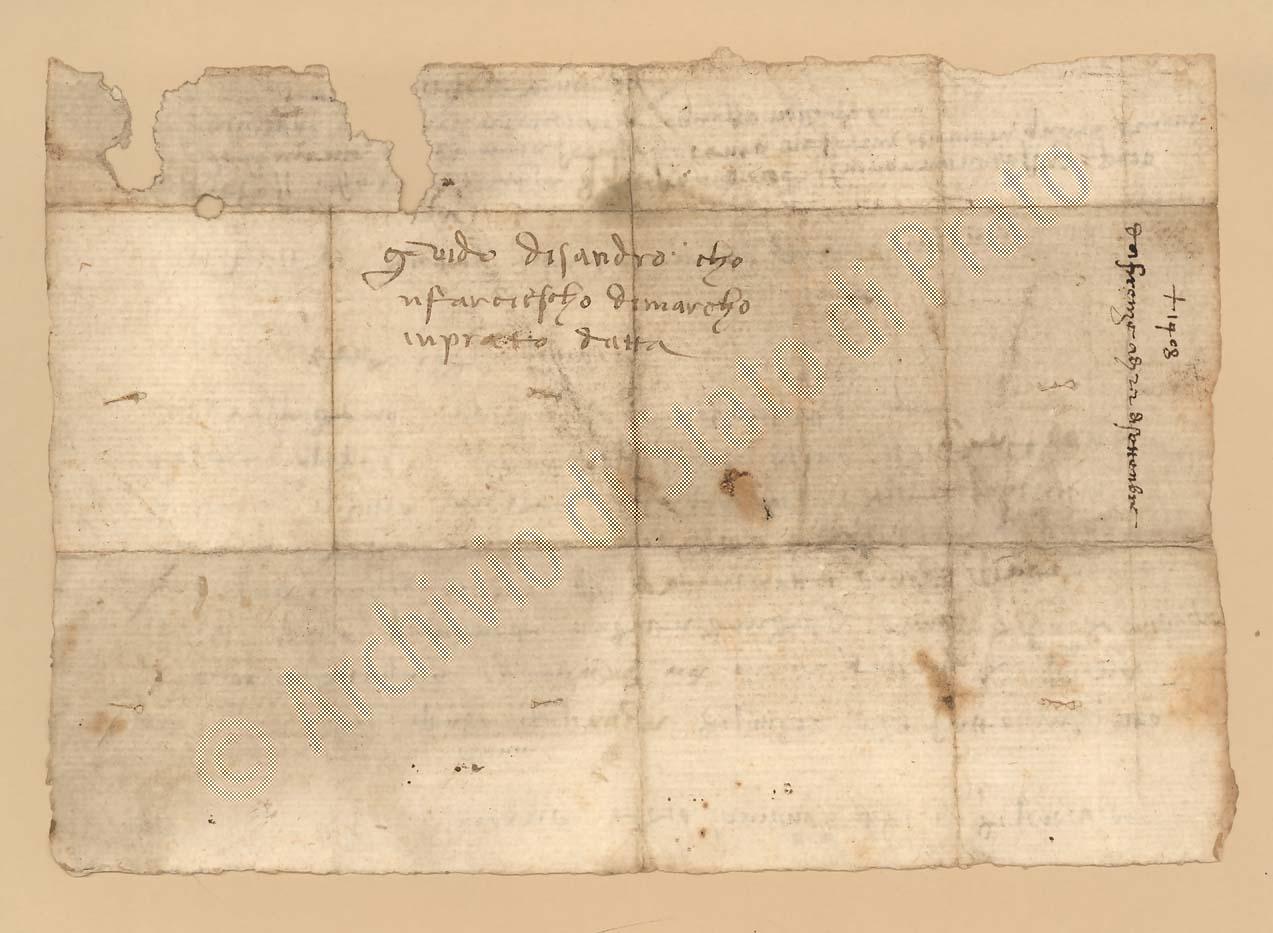 guido disandro cho
nfarciescho dimarcho
inprato datta
+ 1408
da firenze adj 22 disettenbre
© Archivio di Stato di Prato